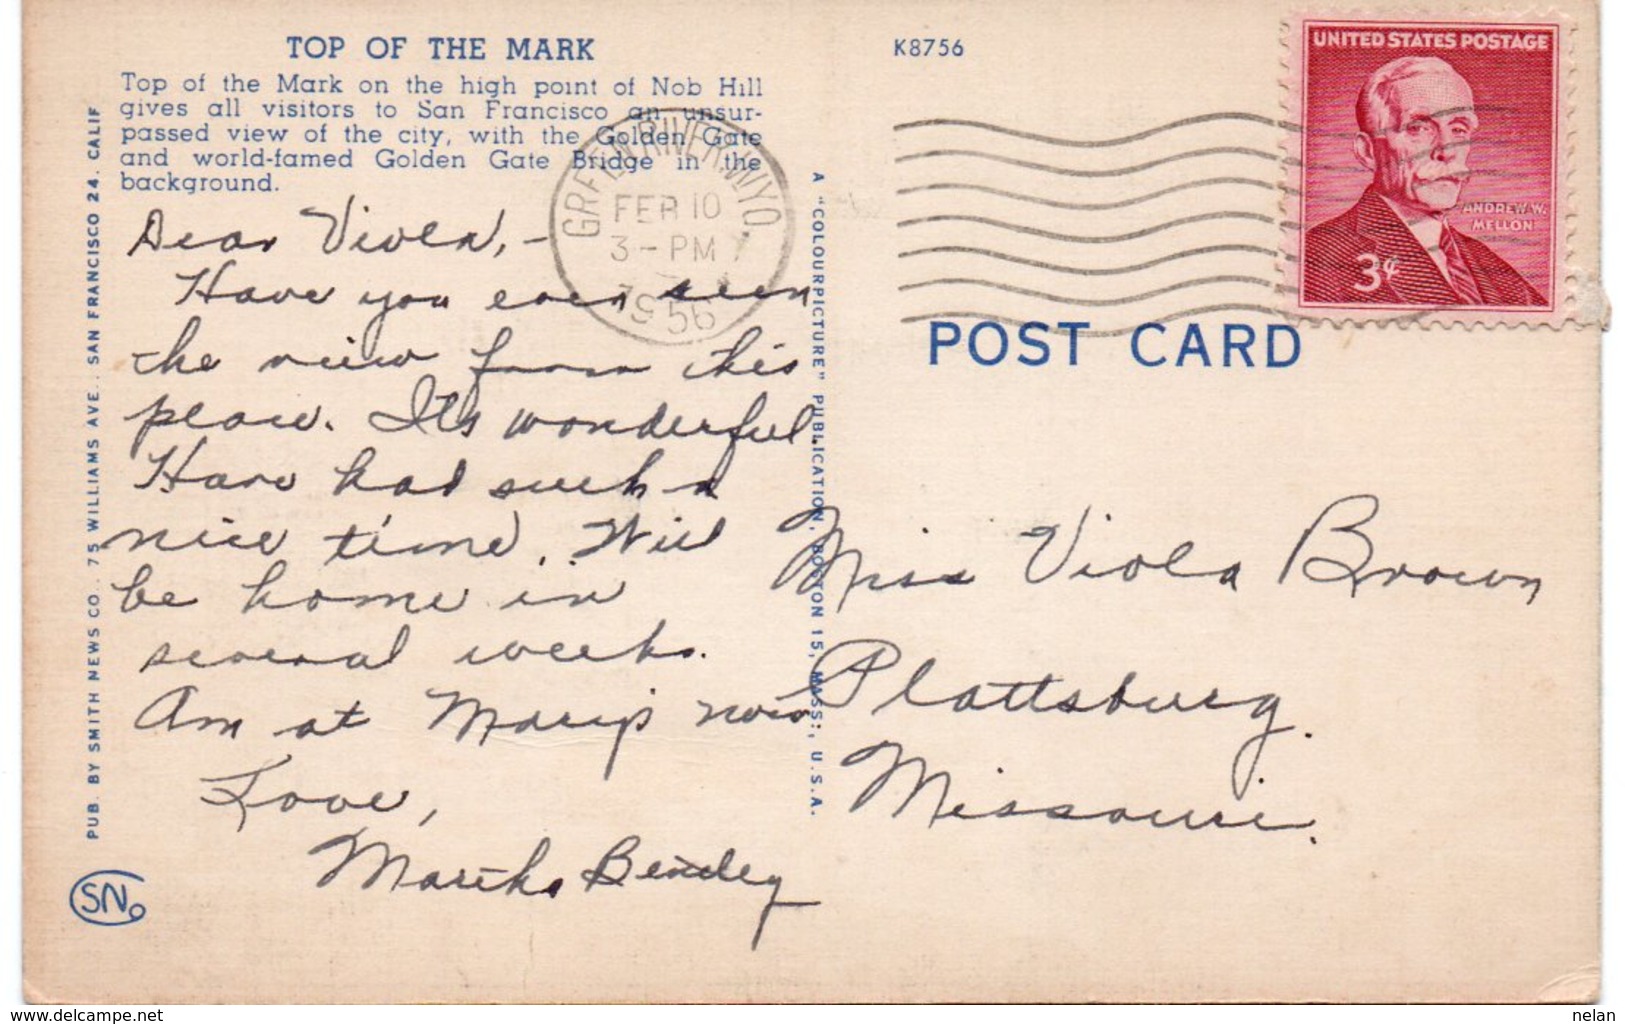 TOP OF THE MARK
Top of the Mark on the high point of Nob Hill
gives all visitors to San Francisco an unsur-
passed view of the city, with the Golden Gate
and world-famed Golden Gate Bridge in the
background.
Dear Viola, -
Have you ever seen
the view from this
place. It's wonderful.
Have had such a
nice time. Will
be home in
several weeks.
Am at Marip now
Love,
Martha Bendley
PUB. BY SMITH NEWS CO., 75 WILLIAMS AVE., SAN FRANCISCO 24, CALIF
SN
GREEN RIVER, WYO.
FEB 10
3 - PM
1956
A "COLOURPICTURE" PUBLICATION, BOSTON 15, MASS., U.S.A.
K8756
UNITED STATES POSTAGE
ANDREW W.
MELLON
3¢
POST CARD
Miss Viola Brown
Plattsburg.
Missouri.
www.delcampe.net
nelan